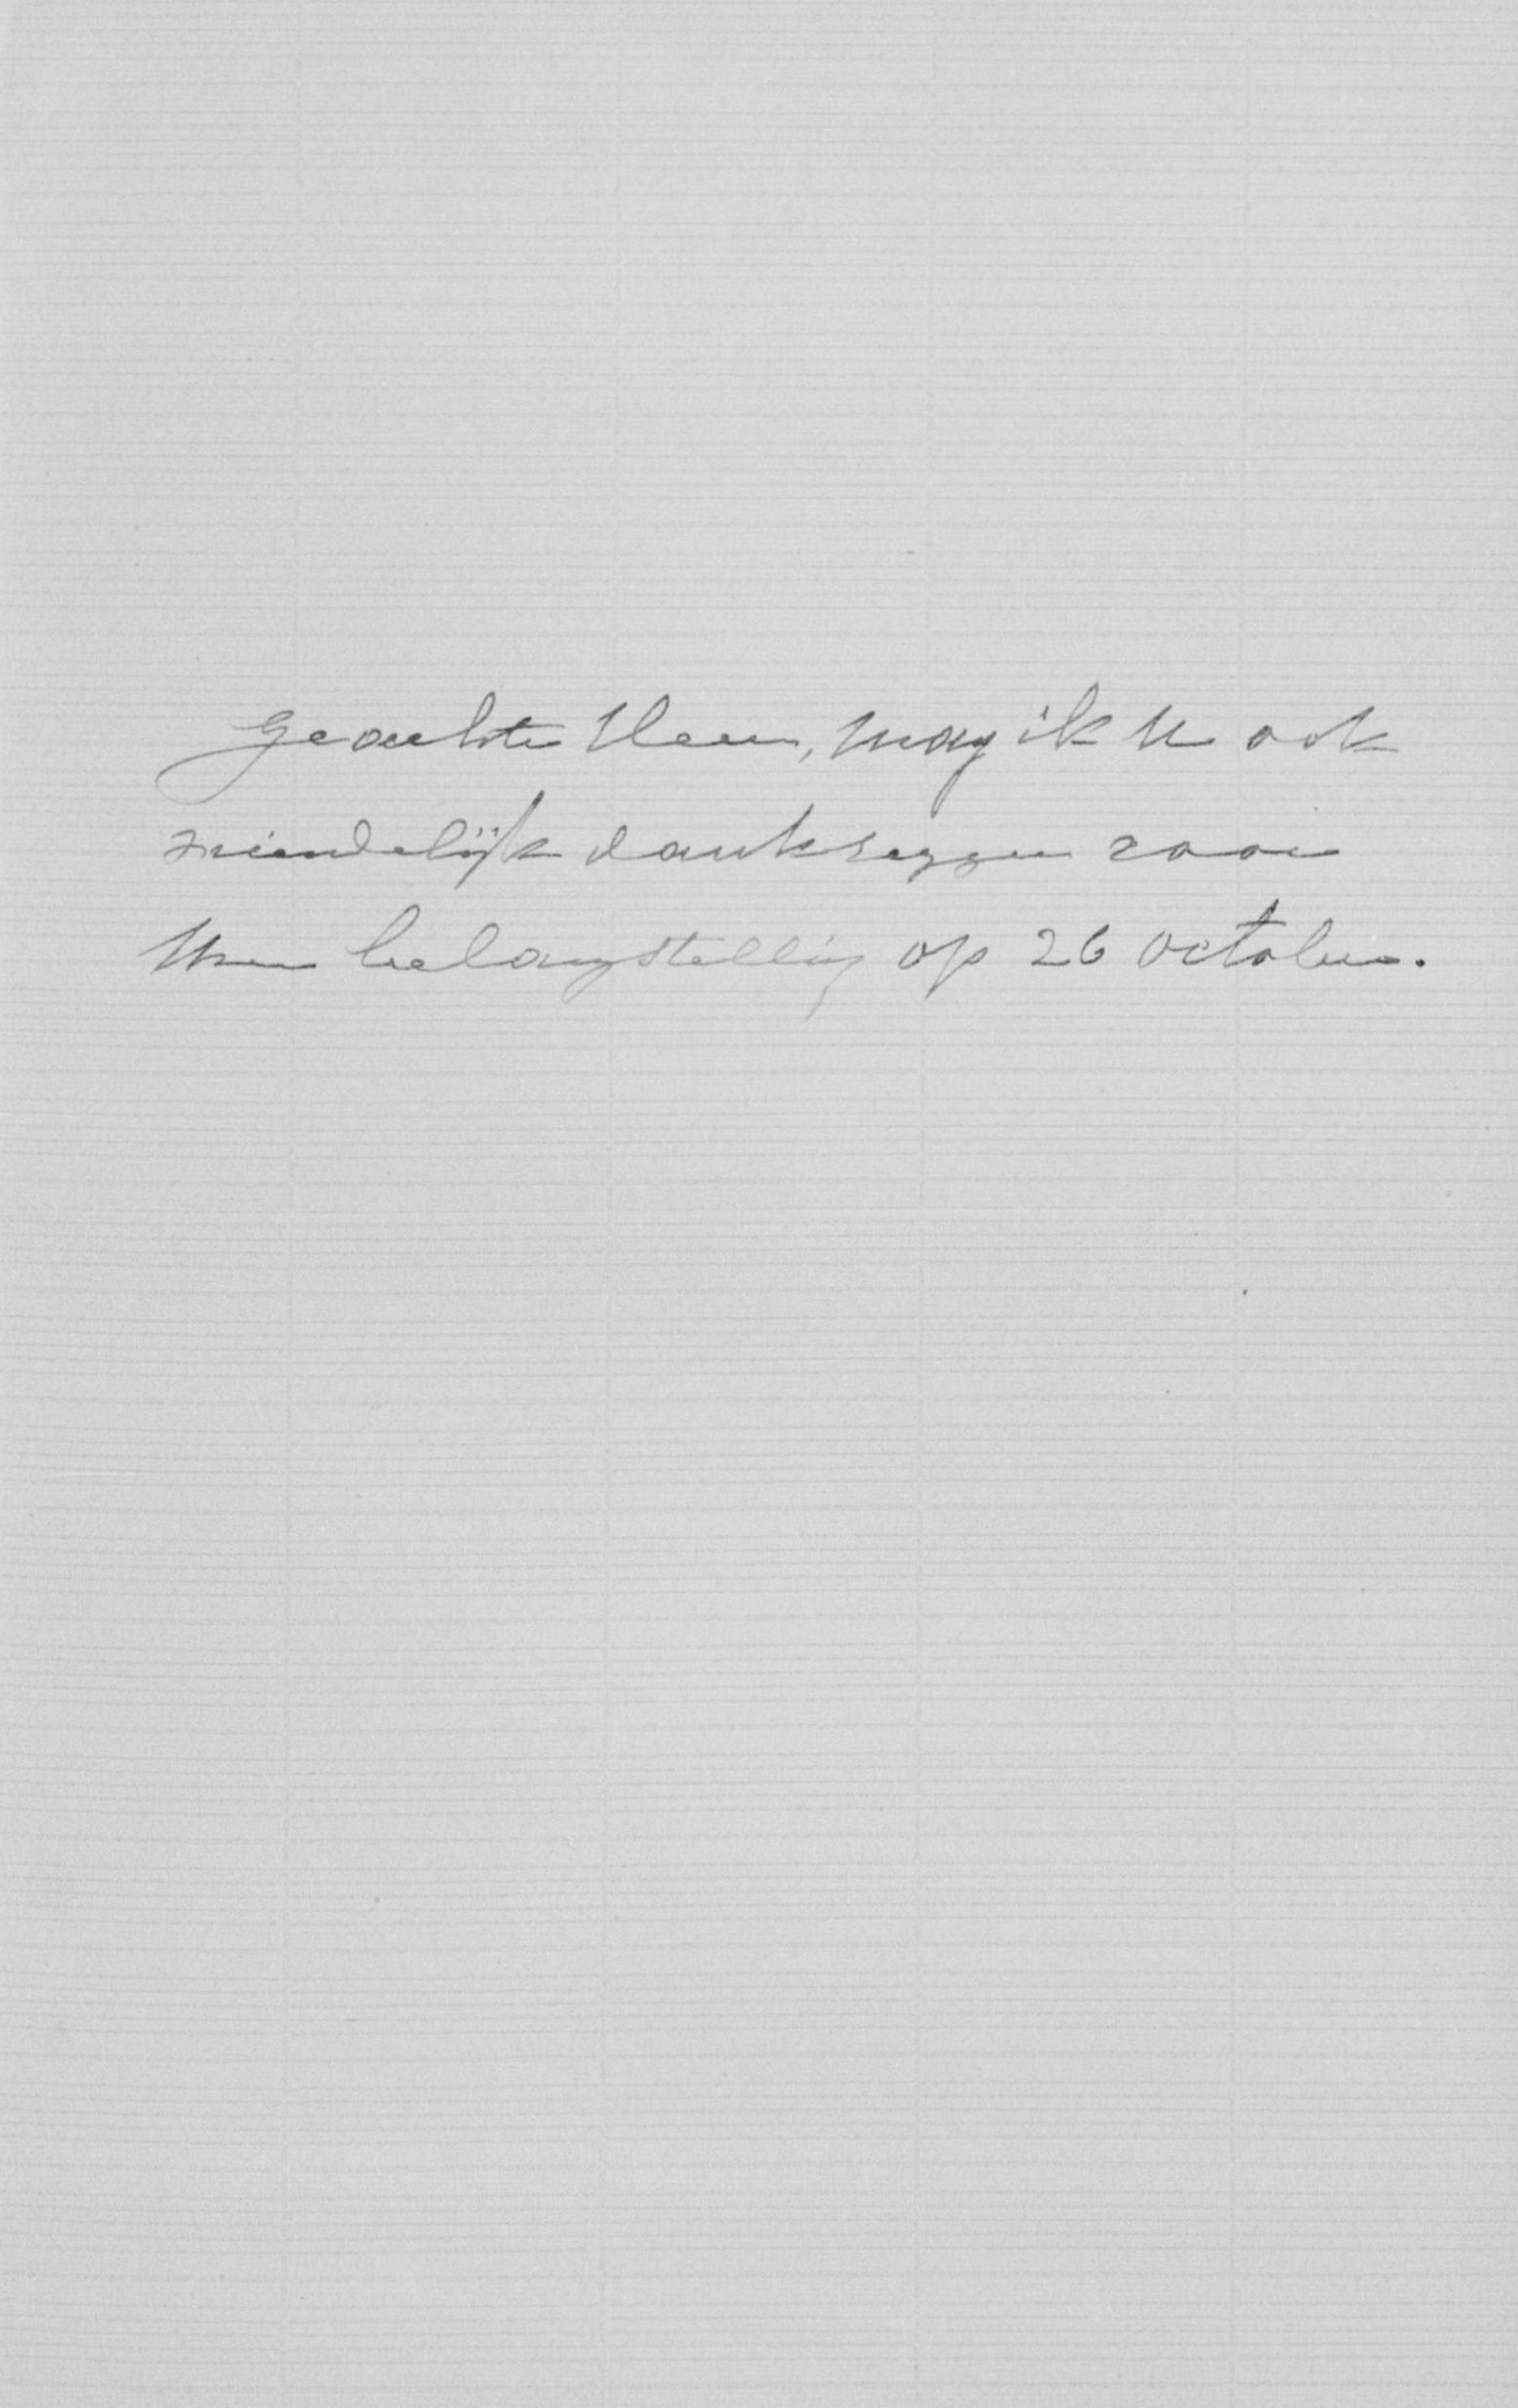 Geachte Heer, mag ik U ook
vriendelijk dankzeggen voor
Uw belangstelling op 26 October.